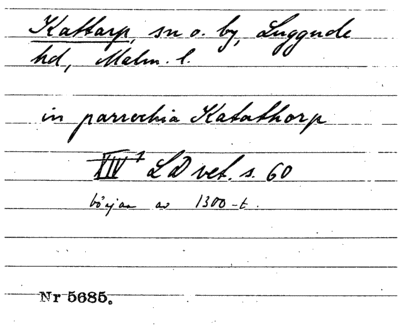 Kattarp, sn o. by, Luggude
hd, Malm. l.
in parrochia Katathorp
XIV 1 LD vet. s. 60
början av 1300-t.
Nr 5685.